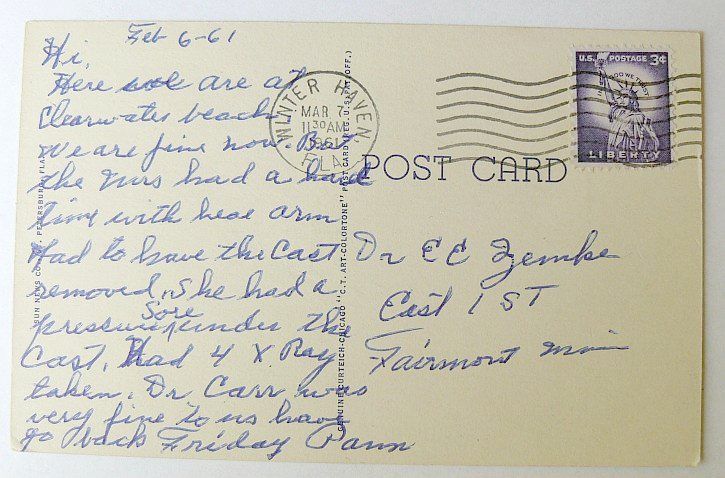 Feb 6-61
Hi,
Here we are at
Clearwater beach
We are fine now. But
the Mrs had a hard
time with her arm
Had to have the Cast
removed, she had a
pressure sore under the
Cast. Had 4 X Ray
taken. Dr. Carr was
very fine to us have
go back Friday
WINTER HAVEN,
MAR 7
11 30 AM
1961
FLA.
U.S. POSTAGE 3¢
IN GOD WE TRUST
LIBERTY
POST CARD
Dr E C Zemke
East 1 ST
Fairmont Minn
SUN NEWS CO. ST. PETERSBURG, FLA.
GENUINE CURTEICH-CHICAGO "C.T. ART-COLORTONE" POST CARD (REG. U.S. PAT. OFF.)